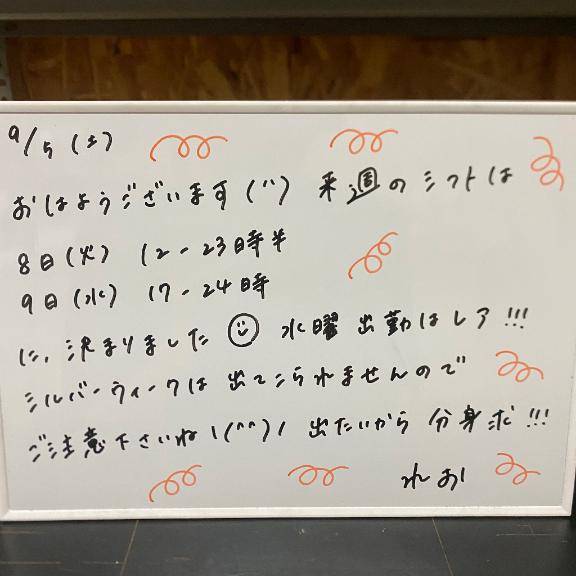 9/5(土)
おはようございます(^^) 来週のシフトは
8日(火) 12-23時半
9日(水) 17-24時
に、決まりました 水曜出勤はレア!!!
シルバーウィークは出てこられませんので
ご注意下さいね!(^^)! 出たいから分身求!!!
れお!